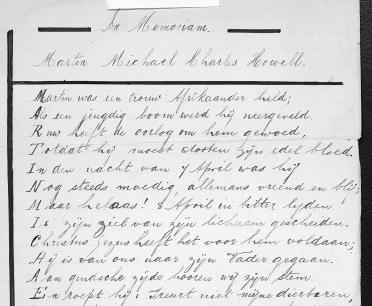 In Memoriam.
Martin Michael Charles Howell.
Martin was een trouw Afrikaander held;
Als een jeugdig boom werd hij neergeveld.
Ruw heeft de oorlog om hem gewoed,
Totdat hij moest storten zijn edel bloed.
In den nacht van 7 April was hij
Nog steeds moedig, allemans vriend en blij;
Maar helaas! 8 April in bitter lijden
Is zijn ziel van zijn lichaam gescheiden.
Christus Jezus heeft het voor hem voldaan;
Hij is van ons naar zijn Vader gegaan.
Aan gindsche zijde hooren wij zijn stem
En roept hij: Treurt niet mijne dierbaren,